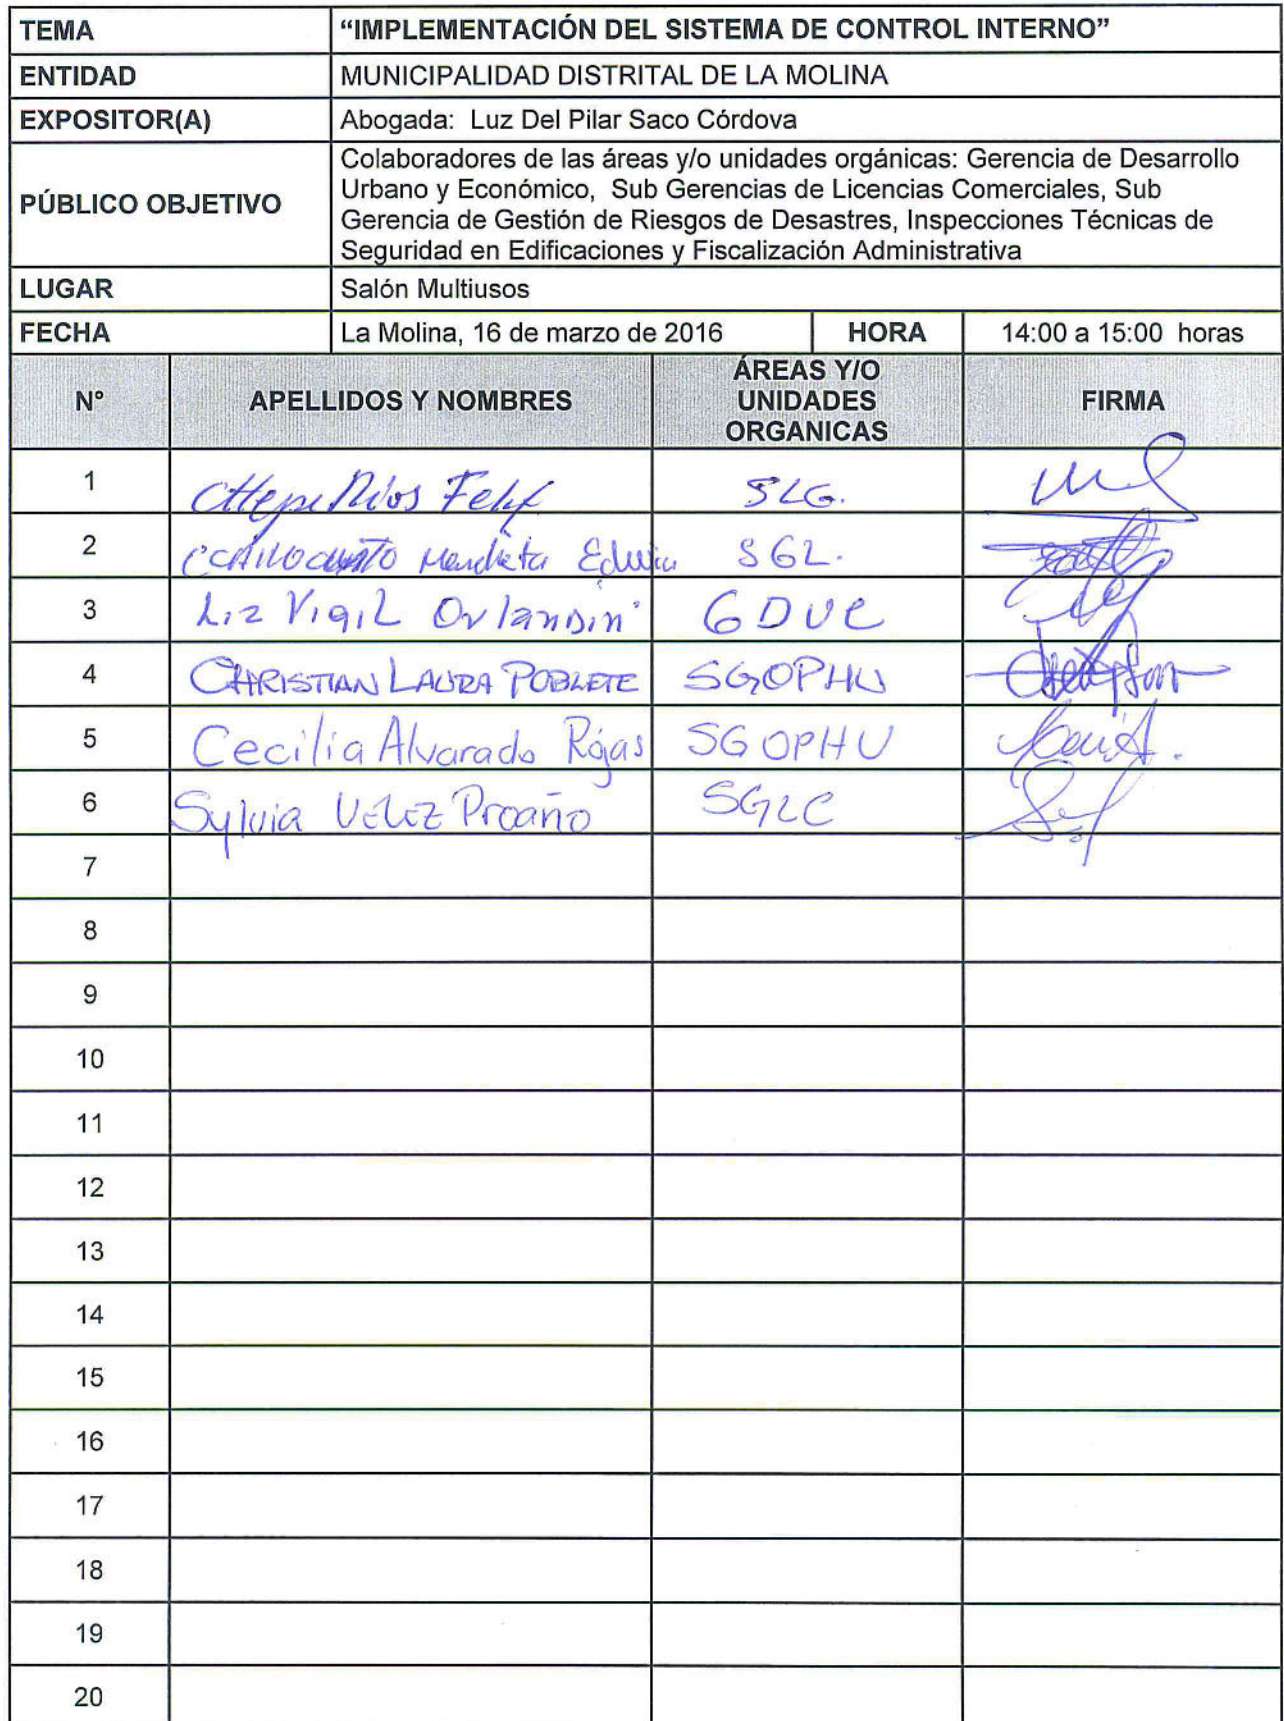 TEMA “IMPLEMENTACIÓN DEL SISTEMA DE CONTROL INTERNO”
ENTIDAD MUNICIPALIDAD DISTRITAL DE LA MOLINA
EXPOSITOR(A) Abogada: Luz Del Pilar Saco Córdova
PÚBLICO OBJETIVO
Colaboradores de las áreas y/o unidades orgánicas: Gerencia de Desarrollo
Urbano y Económico, Sub Gerencias de Licencias Comerciales, Sub
Gerencia de Gestión de Riesgos de Desastres, Inspecciones Técnicas de
Seguridad en Edificaciones y Fiscalización Administrativa
LUGAR Salón Multiusos
FECHA La Molina, 16 de marzo de 2016 HORA 14:00 a 15:00 horas
N° APELLIDOS Y NOMBRES
ÁREAS Y/O
UNIDADES
ORGANICAS
FIRMA
1 Ríos Felix SLG.
2 Mendieta Edwin SGL.
3 Liz Vigil Orlandini GDUE
4 CHRISTIAN LAURA POBLETE SGOPHU
5 Cecilia Alvarado Rojas SGOPHU
6 Sylvia VELEZ Proaño SGLC
7
8
9
10
11
12
13
14
15
16
17
18
19
20